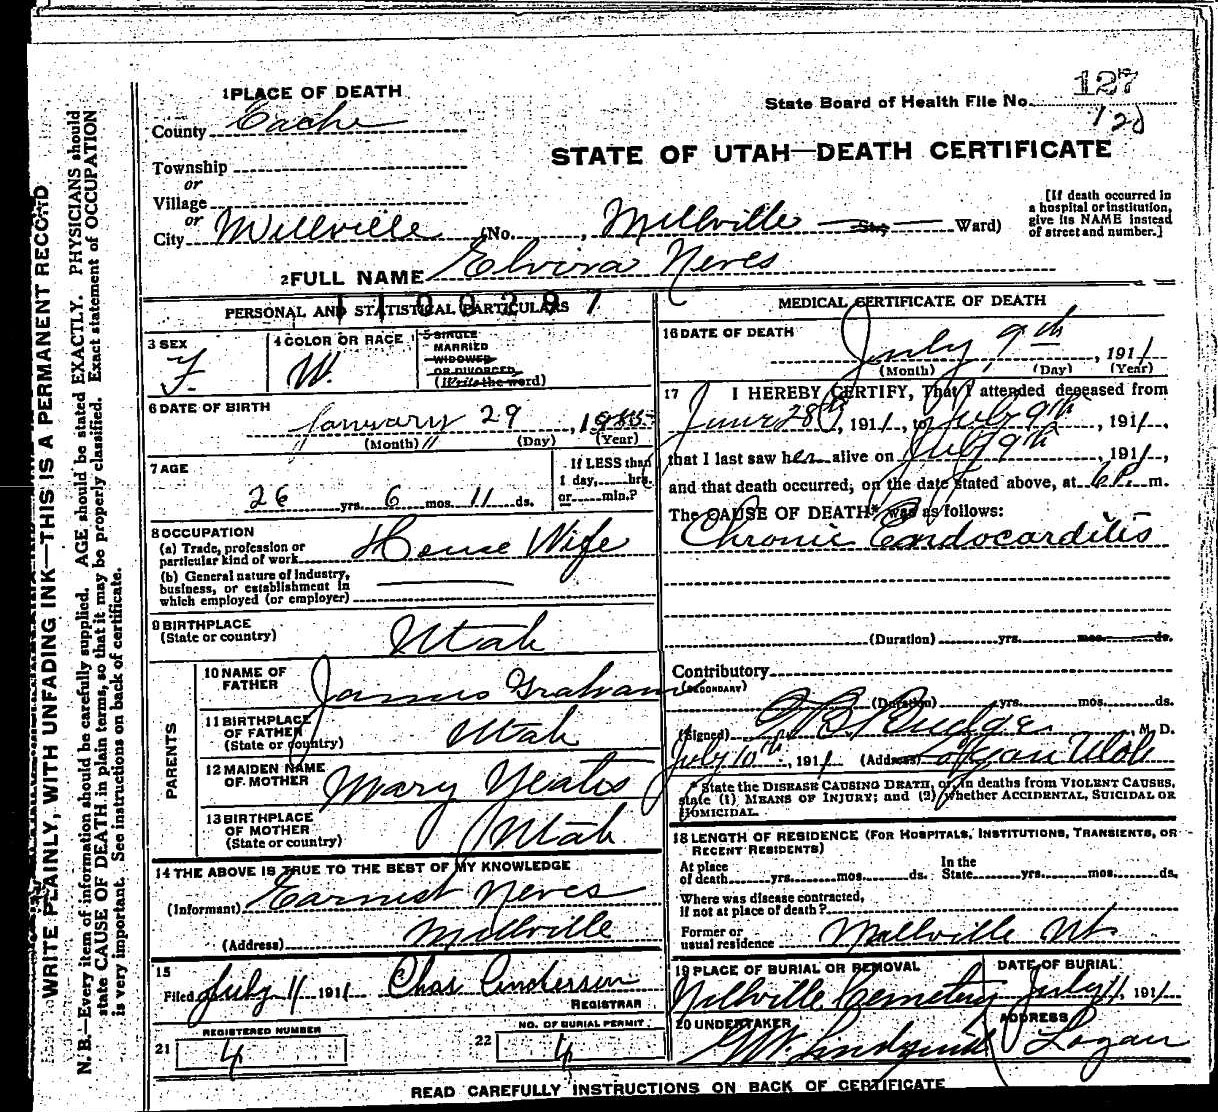 1 PLACE OF DEATH
127
State Board of Health File No.
120
County Cache
STATE OF UTAH—DEATH CERTIFICATE
Township
or
Village
or
City Millville (No. , Millville St; Ward)
[If death occurred in
a hospital or institution,
give its NAME instead
of street and number.]
2 FULL NAME Elvira Neves
1100297
PERSONAL AND STATISTICAL PARTICULARS
3 SEX
F.
4 COLOR OR RACE
W.
5 SINGLE
MARRIED
WIDOWED
OR DIVORCED
(Write the word)
6 DATE OF BIRTH
January 29, 1
(Month) (Day) (Year)
7 AGE
If LESS than
1 day, hrs.
or min.?
26 yrs. 6 mos. 11 ds.
8 OCCUPATION
(a) Trade, profession or
particular kind of work House Wife
(b) General nature of industry,
business, or establishment in
which employed (or employer)
9 BIRTHPLACE
(State or country) Utah
PARENTS
10 NAME OF
FATHER James Graham
11 BIRTHPLACE
OF FATHER
(State or country) Utah
12 MAIDEN NAME
OF MOTHER Mary Yeates
13 BIRTHPLACE
OF MOTHER
(State or country) Utah
14 THE ABOVE IS TRUE TO THE BEST OF MY KNOWLEDGE
(Informant) Earnest Neves
(Address) Millville
15
Filed July 11 1911 Chas. Anderson
REGISTRAR
REGISTERED NUMBER
21 4
NO. OF BURIAL PERMIT
22 4
MEDICAL CERTIFICATE OF DEATH
16 DATE OF DEATH
July 9th, 1911
(Month) (Day) (Year)
17 I HEREBY CERTIFY, That I attended deceased from
June 28th, 1911, to July 9th 1911,
that I last saw her alive on July 9th, 1911,
and that death occurred, on the date stated above, at 6 P. m.
The CAUSE OF DEATH* was as follows:
Chronic Endocarditis
(Duration) yrs. mos. ds.
Contributory
(SECONDARY)
(Duration) yrs. mos. ds.
(Signed) O B. Budge, M. D.
July 10th, 1911 (Address) Logan Utah
* State the DISEASE CAUSING DEATH, or, in deaths from VIOLENT CAUSES,
state (1) MEANS OF INJURY; and (2) whether ACCIDENTAL, SUICIDAL OR
HOMICIDAL.
18 LENGTH OF RESIDENCE (FOR HOSPITALS, INSTITUTIONS, TRANSIENTS, OR
RECENT RESIDENTS)
At place
of death yrs. mos. ds.
In the
State yrs. mos. ds.
Where was disease contracted,
if not at place of death?
Former or
usual residence Millville Ut
19 PLACE OF BURIAL OR REMOVAL
Millville Cemetery
DATE OF BURIAL
July 11, 1911
20 UNDERTAKER
G W. Lindquist
ADDRESS
Logan
READ CAREFULLY INSTRUCTIONS ON BACK OF CERTIFICATE
WRITE PLAINLY, WITH UNFADING INK—THIS IS A PERMANENT RECORD
N. B.—Every item of information should be carefully supplied. AGE should be stated EXACTLY. PHYSICIANS should
state CAUSE OF DEATH in plain terms, so that it may be properly classified. Exact statement of OCCUPATION
is very important. See instructions on back of certificate.